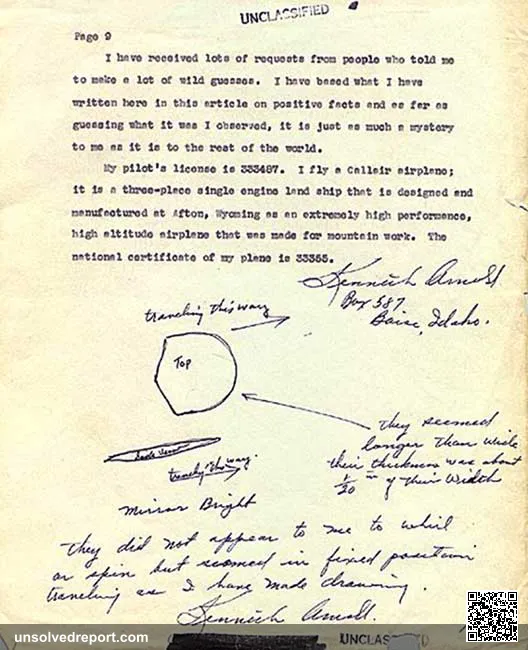 UNCLASSIFIED
Page 9
I have received lots of requests from people who told me
to make a lot of wild guesses. I have based what I have
written here in this article on positive facts and as far as
guessing what it was I observed, it is just as much a mystery
to me as it is to the rest of the world.
My pilot's license is 333487. I fly a Callair airplane;
it is a three-place single engine land ship that is designed and
manufactured at Afton, Wyoming as an extremely high performance,
high altitude airplane that was made for mountain work. The
national certificate of my plane is 33355.
Kenneth Arnold
Box 587
Boise, Idaho.
traveling this way
Top
they seemed
longer than wide
their thickness was about
1/20 th of their width
side view
traveling this way.
Mirror Bright
They did not appear to me to whirl
or spin but seemed in fixed position
traveling as I have made drawing.
Kenneth Arnold.
UNCLASSIFIED
unsolvedreport.com